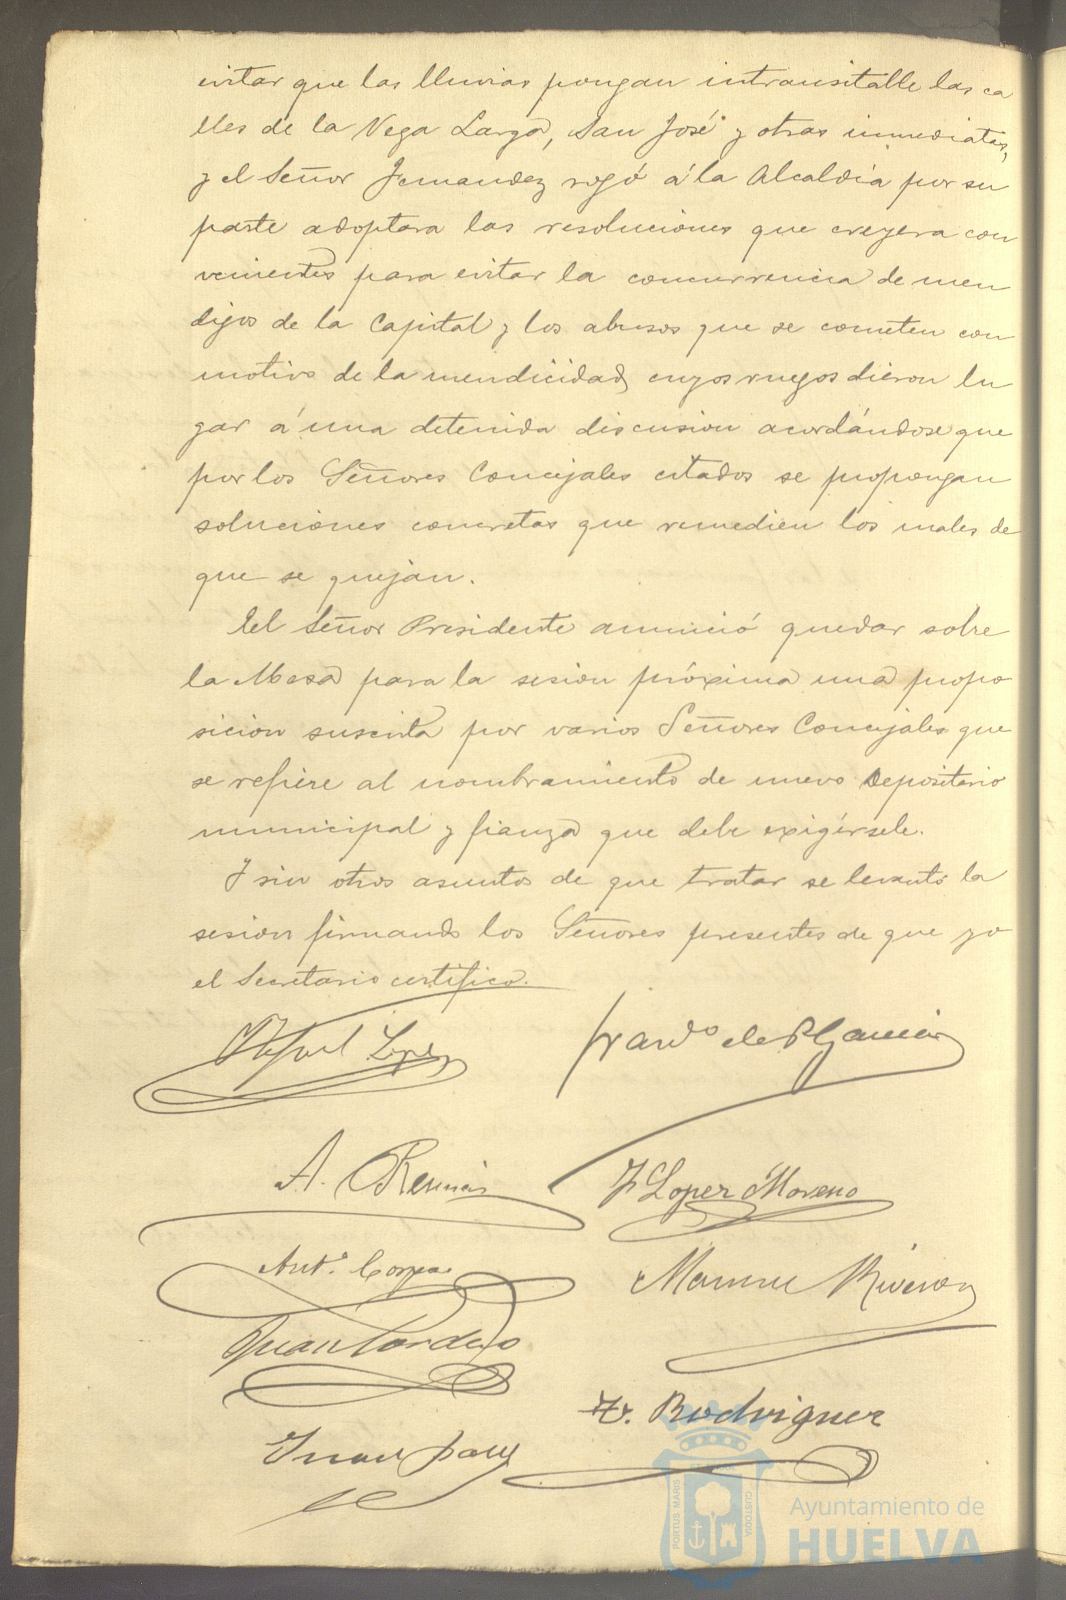 evitar que las lluvias pongan intransitable las ca
lles de la Vega Larga, San José y otras inmediatas,
y el Señor Fernandez rogó á la Alcaldía por su
parte adoptara las resoluciones que creyera con
venientes para evitar la concurrencia de men
digos de la Capital y los abusos que se cometen con
motivo de la mendicidad, cuyos ruegos dieron lu
gar á una detenida discusion acordándose que
por los Señores Concejales citados se propongan
soluciones concretas que remedien los males de
que se quejan.
El Señor Presidente anunció quedar sobre
la Mesa para la sesion próxima una propo
sicion suscrita por varios Señores Concejales que
se refiere al nombramiento de nuevo Depositario
municipal y fianza que debe exigírsele.
Y sin otros asuntos de que tratar se levantó la
sesion firmando los Señores presentes de que yo
el Secretario certifico.
Lopez
Franco de P Garcia
A.
F Lopez Moreno
Anto
Juan Cordero
Rodriguez
Juan
PORTUS MARIS CUSTODIA
Ayuntamiento de
HUELVA